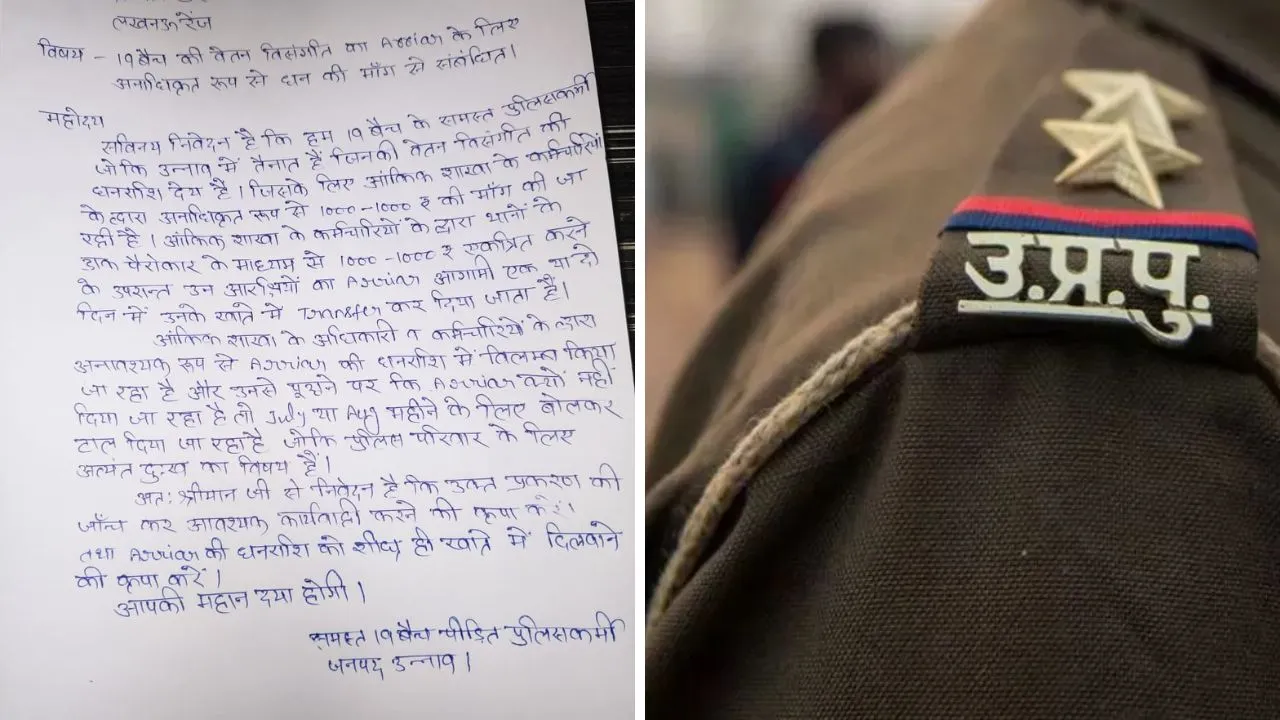 लखनऊ रेंज
विषय - 19 बैच की वेतन विसंगति का Arriar के लिए
अनाधिकृत रूप से धन की माँग से संबंधित।
महोदय
सविनय निवेदन है कि हम 19 बैच के समस्त पुलिसकर्मी
जोकि उन्नाव में तैनात हैं जिनकी वेतन विसंगति की
धनराशि देय है। जिसके लिए आंकिक शाखा के कर्मचारियों
के द्वारा अनाधिकृत रूप से 1000-1000 ₹ की माँग की जा
रही है। आंकिक शाखा के कर्मचारियों के द्वारा थानों के
डाक पैरोकार के माध्यम से 1000-1000 ₹ एकत्रित करने
के उपरान्त उन आरक्षियों का Arriar आगामी एक या दो
दिन में उनके खाते में Transfer कर दिया जाता है।
आंकिक शाखा के अधिकारी व कर्मचारियों के द्वारा
अनावश्यक रूप से Arriar की धनराशि में विलम्ब किया
जा रहा है और उनसे पूछने पर कि Arriar क्यों नहीं
दिया जा रहा है तो July या Aug महीने के लिए बोलकर
टाल दिया जा रहा है जोकि पुलिस परिवार के लिए
अत्यंत दुःख का विषय हैं।
अतः श्रीमान जी से निवेदन है कि उक्त प्रकरण की
जाँच कर आवश्यक कार्यवाही करने की कृपा करें।
तथा Arriar की धनराशि को शीघ्र ही खाते में दिलवाने
की कृपा करें।
आपकी महान दया होगी।
समस्त 19 बैच पीड़ित पुलिसकर्मी
जनपद उन्नाव।
उ.प्र.पु.